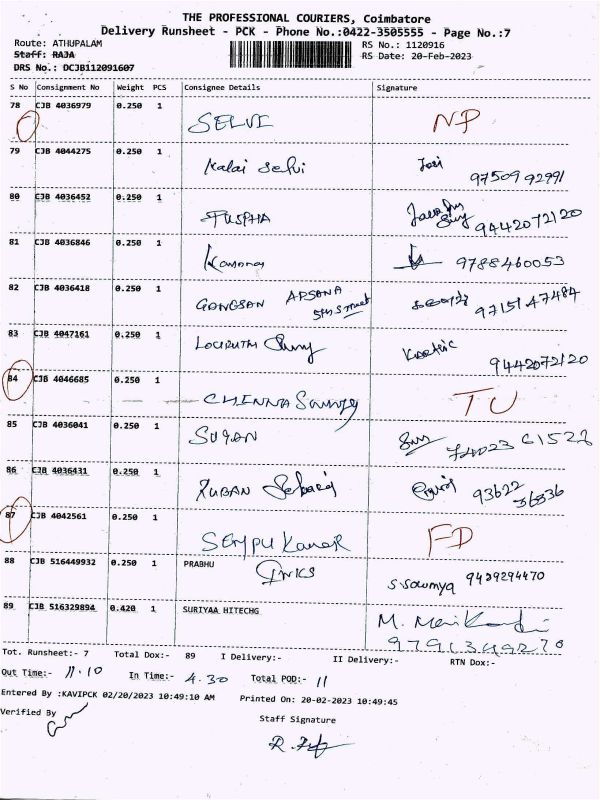 THE PROFESSIONAL COURIERS, Coimbatore
Delivery Runsheet - PCK - Phone No.:0422-3505555 - Page No.:7
Route: ATHUPALAM RS No.: 1120916
Staff: RAJA RS Date: 20-Feb-2023
DRS No.: DCJB112091607
S No Consignment No Weight PCS Consignee Details Signature
78 CJB 4036979 0.250 1 SELVI NP
79 CJB 4044275 0.250 1 Kalai Selvi 97509 92991
80 CJB 4036452 0.250 1 PUSPHA 9442072120
81 CJB 4036846 0.250 1 9788460053
82 CJB 4036418 0.250 1 GANGSAN ARSANA 5th Street 97151 47484
83 CJB 4047161 0.250 1 Karthic 9442072120
84 CJB 4046685 0.250 1 CHINNA Samy TU
85 CJB 4036041 0.250 1 SUJAN 74023 61527
86 CJB 4036431 0.250 1 RUBAN 93622 36836
87 CJB 4042561 0.250 1 FD
88 CJB 516449932 0.250 1 PRABHU S. Sowmya 9439294470
89 CJB 516329894 0.420 1 SURIYAA HITECHG M.
Tot. Runsheet:- 7 Total Dox:- 89 I Delivery:- II Delivery:- RTN Dox:-
Out Time:- 11.10 In Time:- 4.30 Total POD:- 11
Entered By :KAVIPCK 02/20/2023 10:49:10 AM Printed On: 20-02-2023 10:49:45
Verified By Staff Signature